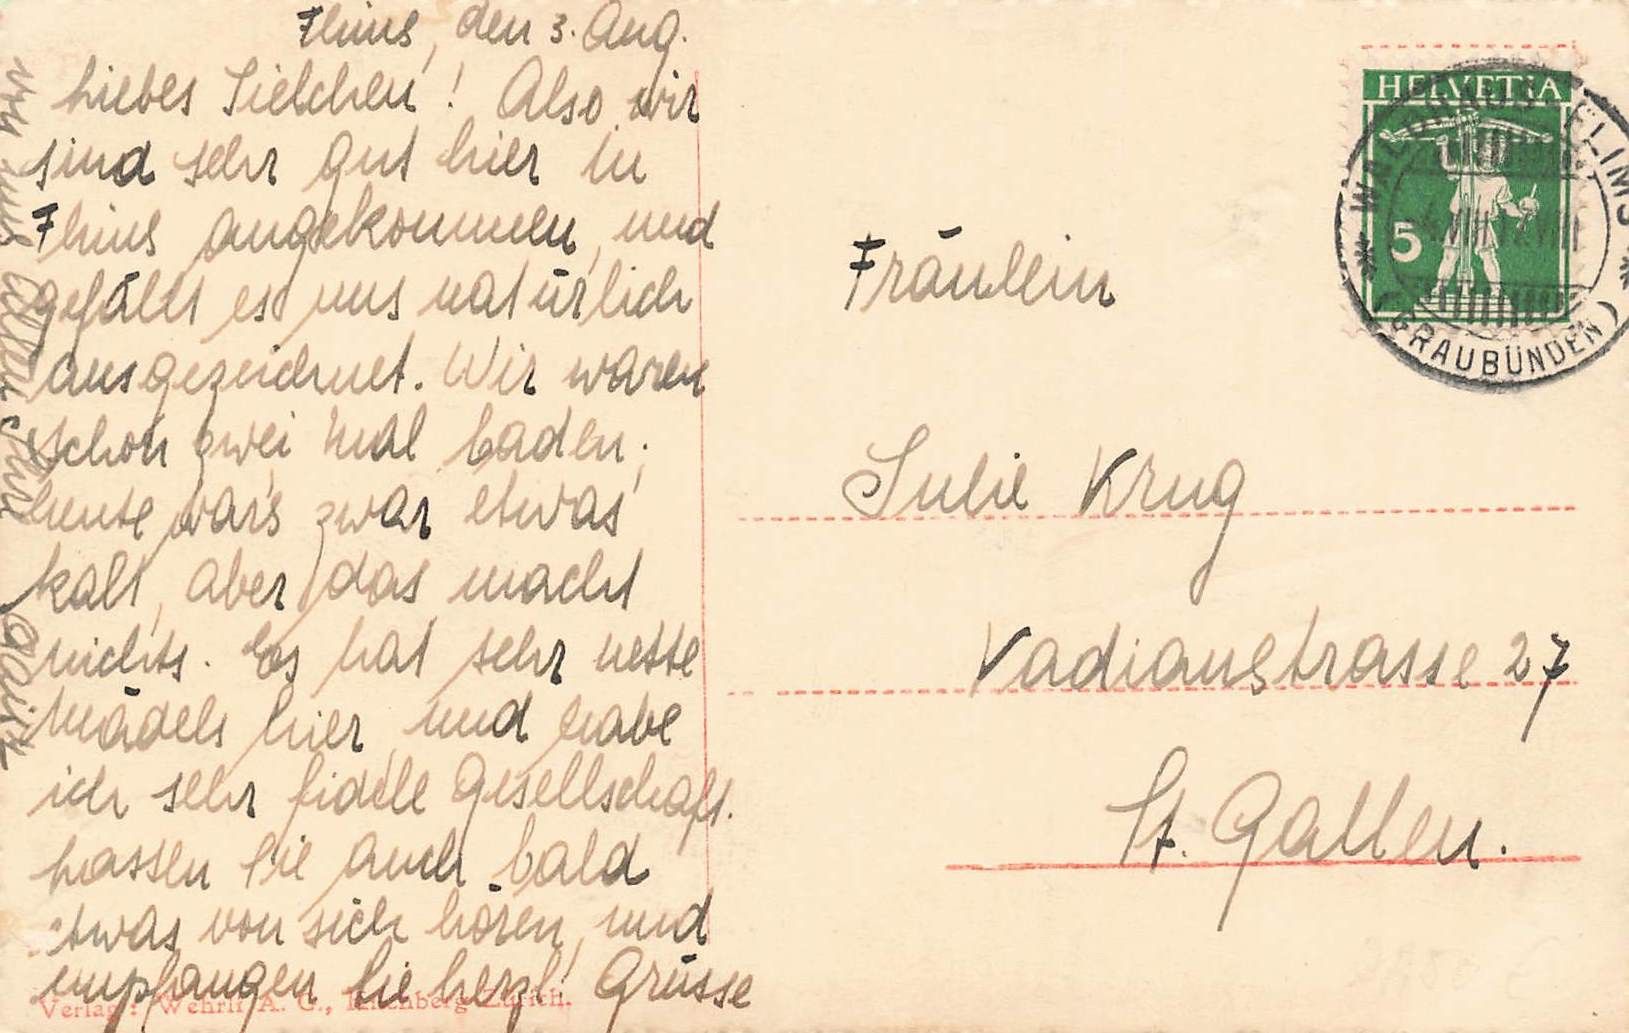 Flims, den 3. Aug.
Liebes Julchen! Also wir
sind sehr gut hier in
Flims angekommen, und
gefällt es uns natürlich
ausgezeichnet. Wir waren
schon zwei mal baden;
heute war's zwar etwas
kalt, aber das macht
nichts. Es hat sehr nette
Mädels hier, und habe
ich sehr fidele Gesellschaft.
Lassen Sie auch bald
etwas von sich hören, und
empfangen Sie herzl. Grüsse
von uns allen
Verlag: Wehrli A. G., Kilchberg-Zürich.
HELVETIA
5
WALDHAUS-FLIMS
(GRAUBÜNDEN)
Fräulein
Julie Krug
Vadianstrasse 27
St. Gallen.